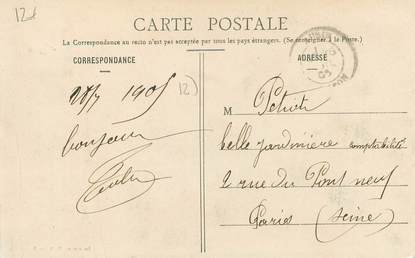 12
CARTE POSTALE
La Correspondance au recto n'est pas acceptée par tous les pays étrangers. (Se renseigner à la Poste.)
CORRESPONDANCE
ADRESSE
1905
12)
bonjour
M
belle jardinière comptabilité
2 rue du Pont neuf
Paris (Seine)